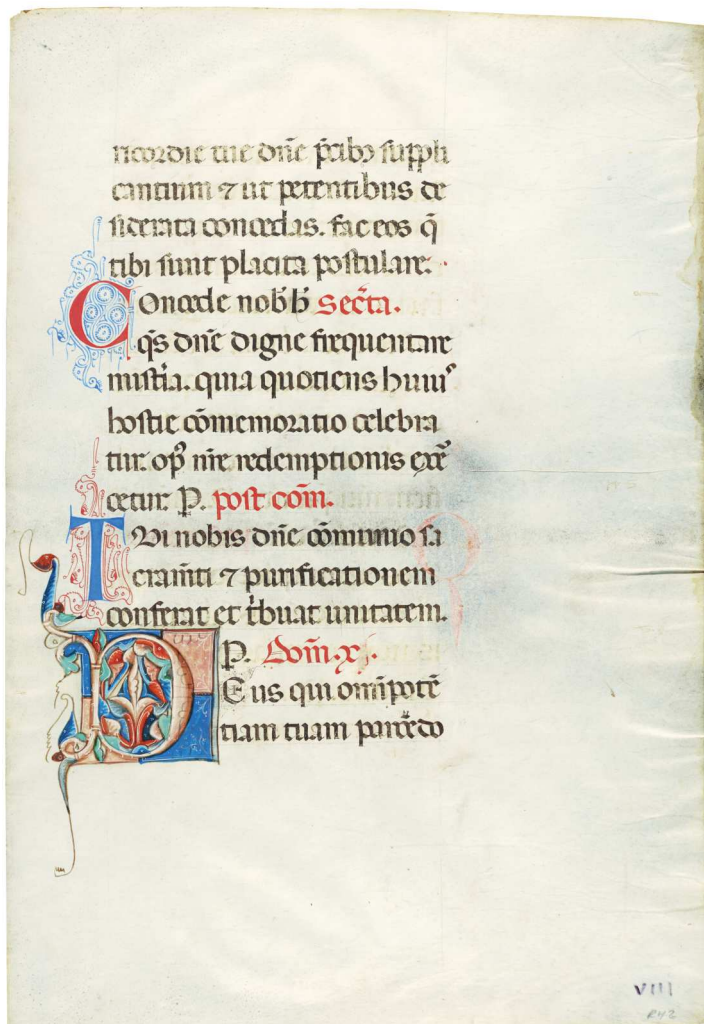 ricordie tue dn̄e p̄cibꝫ suppli
cantium ⁊ ut petentibus de
siderata concedas. fac eos q̄
tibi sunt placita postulare.
Concede nob̄ secr̄ta.
q̄s dn̄e digne frequentare
mist̄ia. quia quotiens huiuꝰ
hostie cōmemoratio celebra
tur. opꝰ nr̄e redemptionis exer̄
cetur. P. post com̄.
Tui nobis dn̄e cōmunio sa
cram̄ti ⁊ purificationem
conferat et t̄buat unitatem.
P. Dom̄. xj.
Deus qui om̄ipotē
tiam tuam parcēdo
VIII